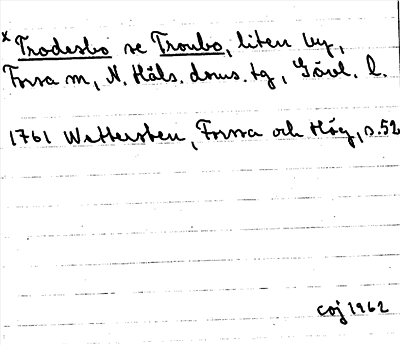 x Trodesbo se Troubo, liten by,
Forsa sn, N. Häls. doms. tg, Gävl. l.
1761 Wettersten, Forssa och Hög, s. 52
coj 1962